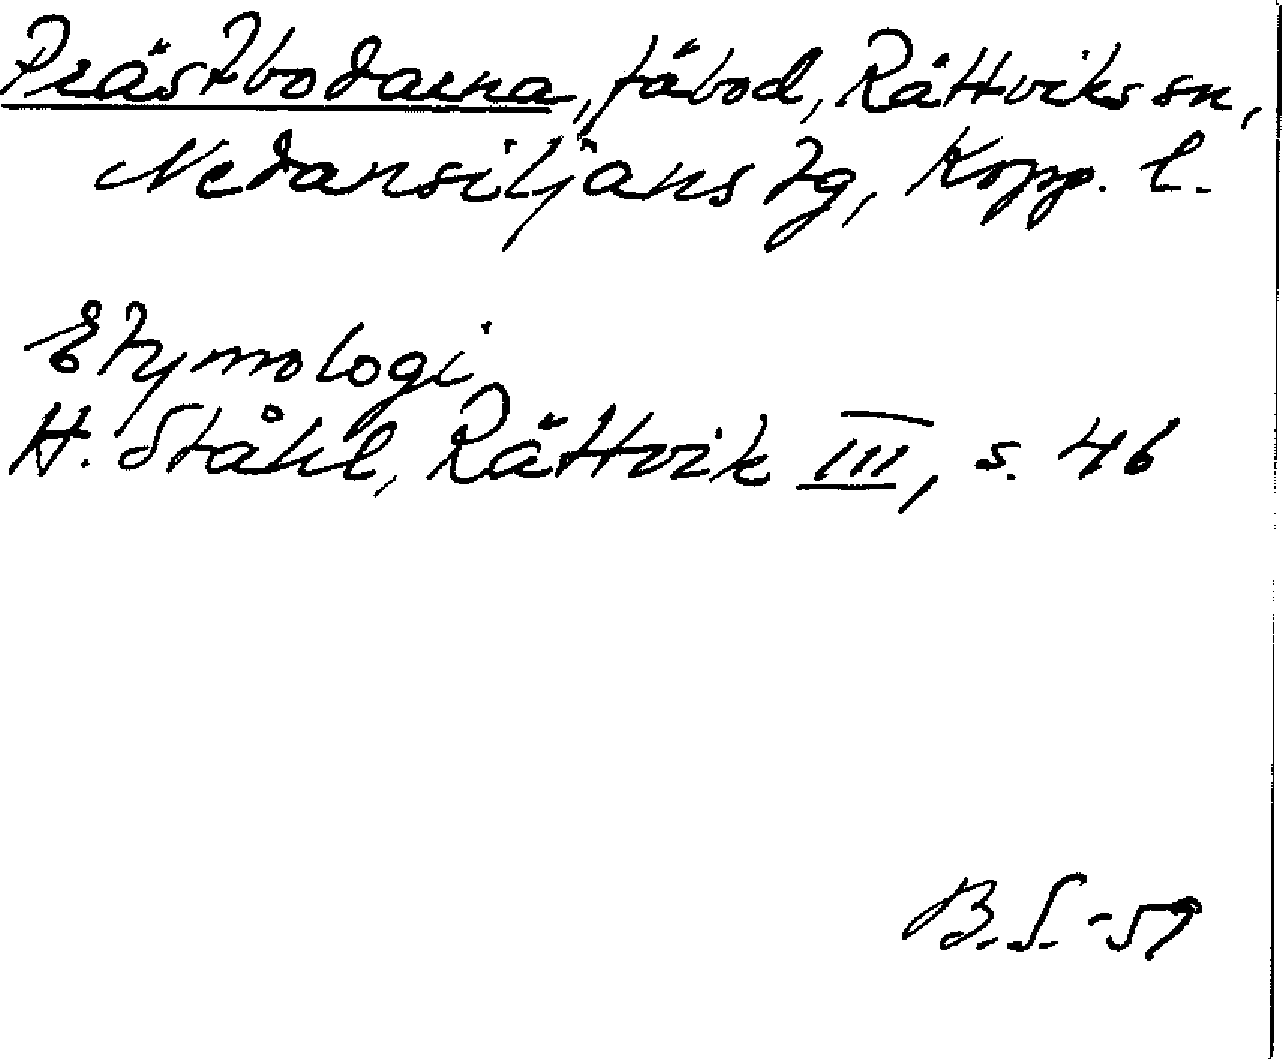 Prästbodarna, fäbod, Rättviks sn,
Nedansiljans tg, Kopp. l.
Etymologi
H. Ståhl, Rättvik III, s. 46
B.S. -59